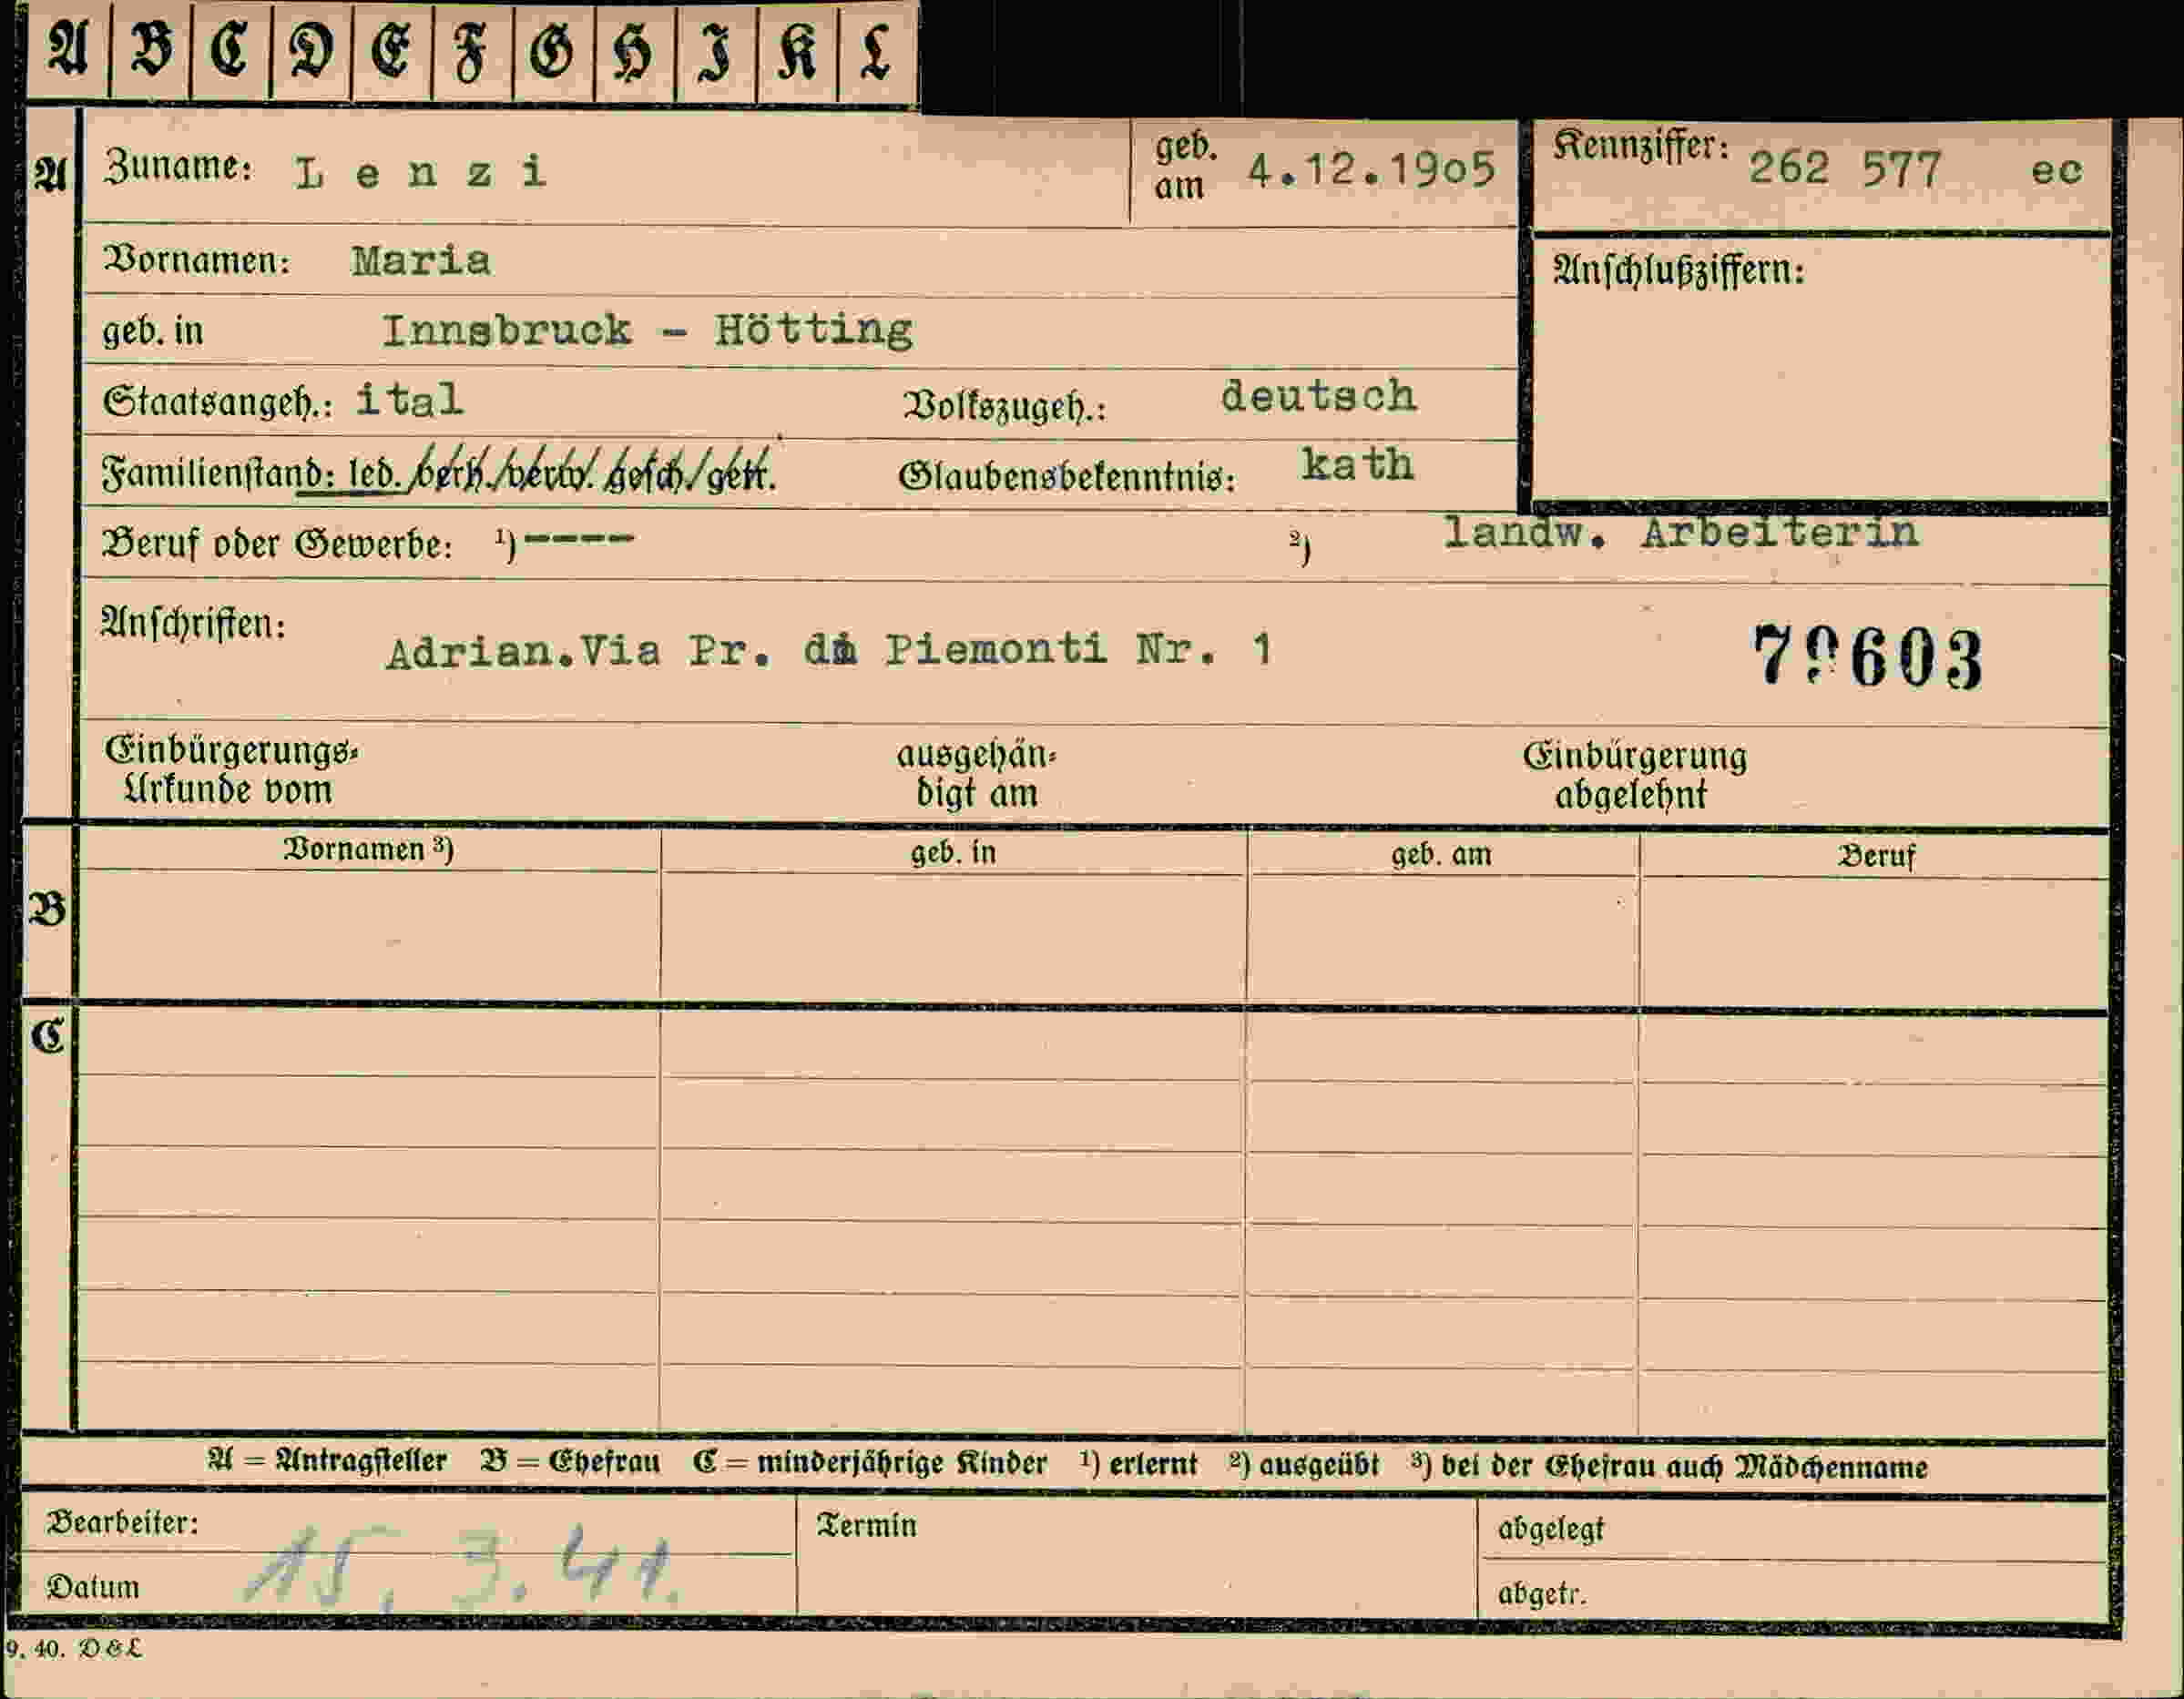 A B C D E F G H I K L
A Zuname: Lenzi geb. am 4.12.19o5 Kennziffer: 262 577 ec
Vornamen: Maria Anschlußziffern:
geb. in Innsbruck - Hötting
Staatsangeh.: ital Volkszugeh.: deutsch
Familienstand: led./verh./verw./gesch./getr. Glaubensbekenntnis: kath
Beruf oder Gewerbe: 1) ---- 2) landw. Arbeiterin
Anschriften: Adrian.Via Pr. di Piemonti Nr. 1
Einbürgerungs- ausgehän- Einbürgerung
Urkunde vom digt am abgelehnt
Vornamen 3) geb. in geb. am Beruf
B
C
A = Antragsteller B = Ehefrau C = minderjährige Kinder 1) erlernt 2) ausgeübt 3) bei der Ehefrau auch Mädchenname
Bearbeiter: Termin abgelegt
Datum 15. 3. 41. abgetr.
9. 40. D&L